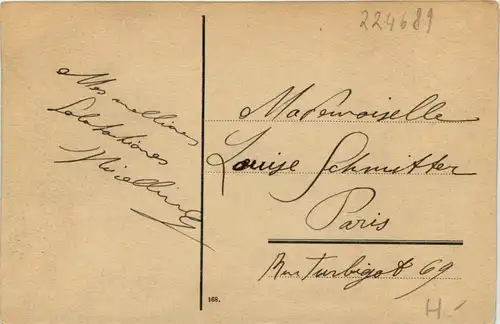 224689
Mes meilleures
Salutations
Mademoiselle
Louise Schmitter
Paris
Rue Turbigot 69
168.
H.-